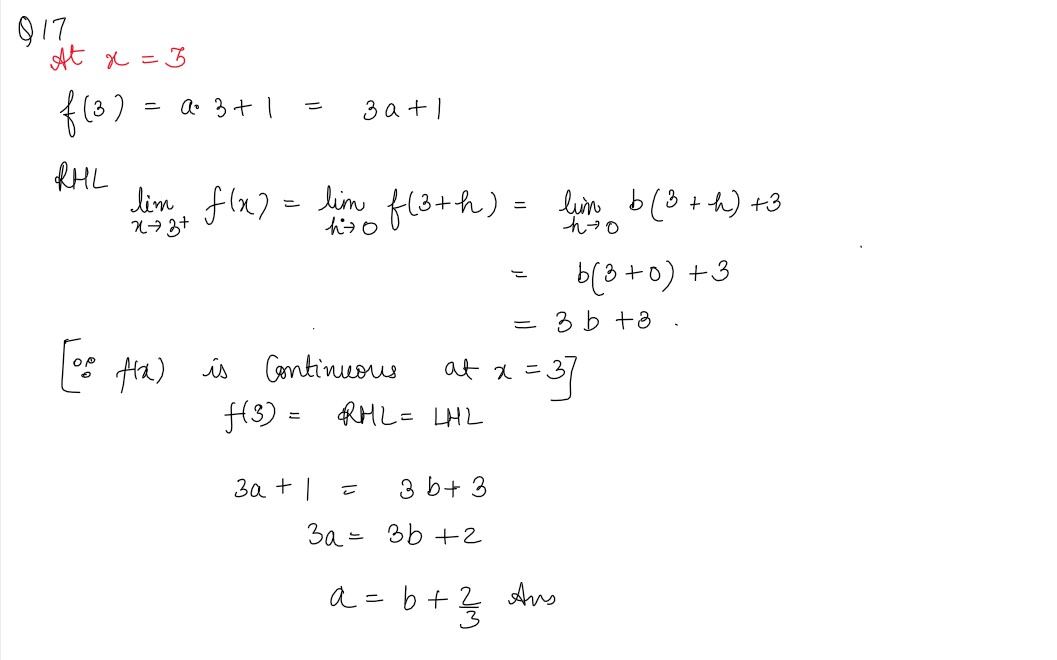 Q17
At x = 3
f(3) = a. 3 + 1 = 3a + 1
RHL
lim x→3+ f(x) = lim h→0 f(3+h) = lim h→0 b(3+h) + 3
= b(3+0) + 3
= 3b + 3 .
[∵ f(x) is Continuous at x = 3]
f(3) = RHL = LHL
3a + 1 = 3b + 3
3a = 3b + 2
a = b + 2/3 Ans